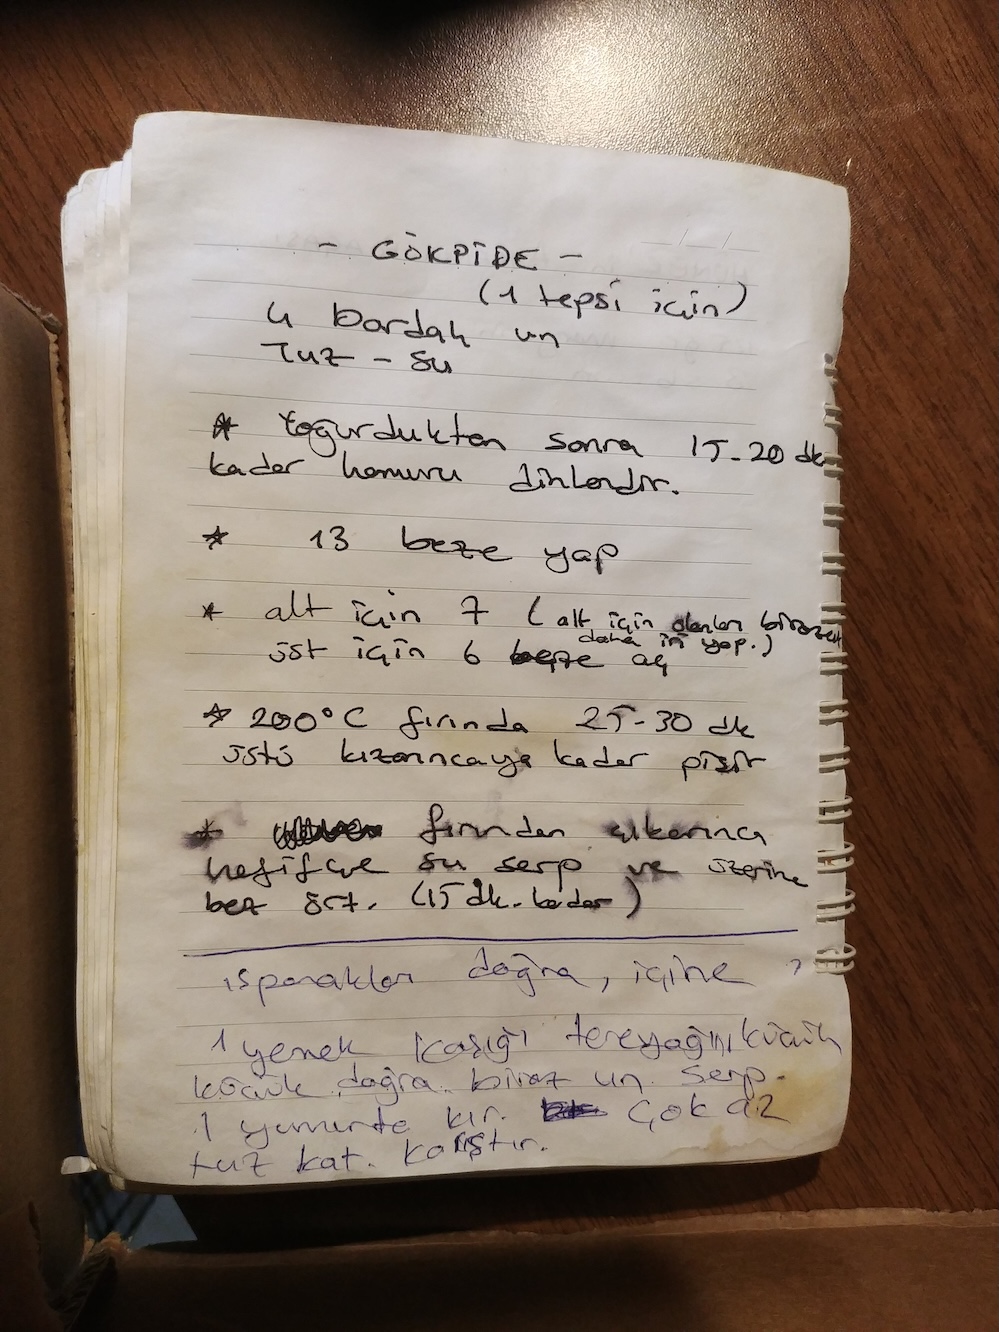 - GÖKPİDE -
(1 tepsi için)
4 bardak un
Tuz - su
* Yoğurdukten sonra 15-20 dk
kadar hamuru dinlendir.
* 13 beze yap
* alt için 7 (alt için olanları birazcık
daha iri yap.)
üst için 6 beze aç
* 200°C fırında 25-30 dk
üstü kızarıncaya kadar pişir
* fırından çıkarınca
hafifçe su serp ve üzerine
bez ört. (15 dk. kadar)
ıspanakları doğra, içine
1 yemek kaşığı tereyağını küçük
küçük doğra. biraz un serp.
1 yumurta kır. çok az
tuz kat. karıştır.